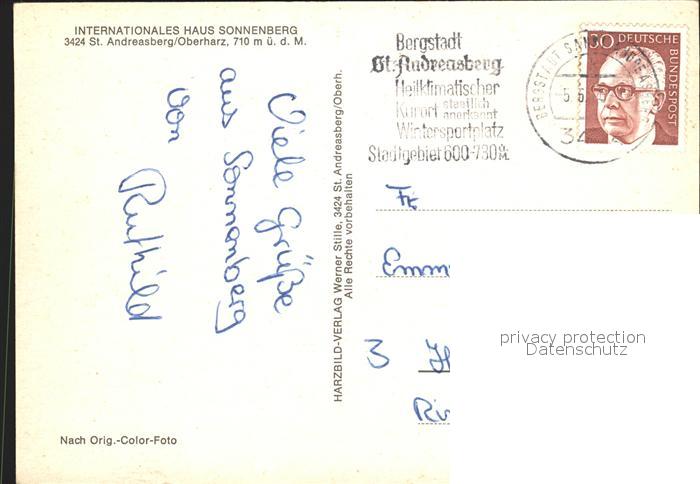 INTERNATIONALES HAUS SONNENBERG
3424 St. Andreasberg/Oberharz, 710 m ü. d. M.
Viele Grüße
aus Sonnenberg
von
Ruthild
Nach Orig.-Color-Foto
HARZBILD-VERLAG Werner Stille, 3424 St. Andreasberg/Oberh.
Alle Rechte vorbehalten
Bergstadt
St. Andreasberg
Heilklimatischer
Kurort staatlich anerkannt
Wintersportplatz
Stadtgebiet 600-730 M.
BERGSTADT SANKT ANDREASBERG
5.5.
34
30 DEUTSCHE
BUNDESPOST
Fr.
Emm
3 H
Ri
privacy protection
Datenschutz